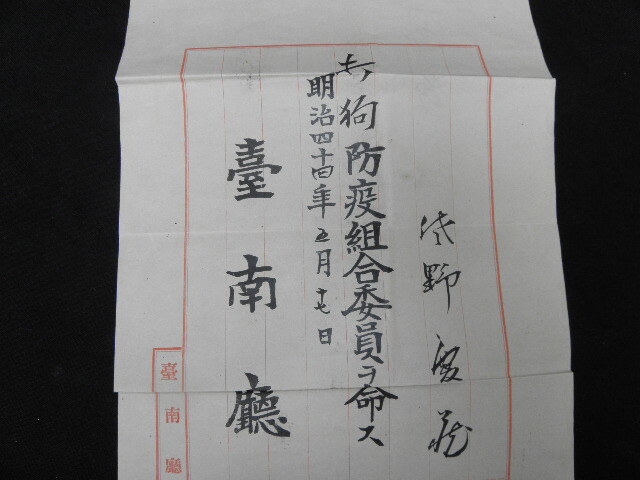 野
打狗防疫組合委員ヲ命ス
明治四十四年五月十七日
臺南廳
臺南廳